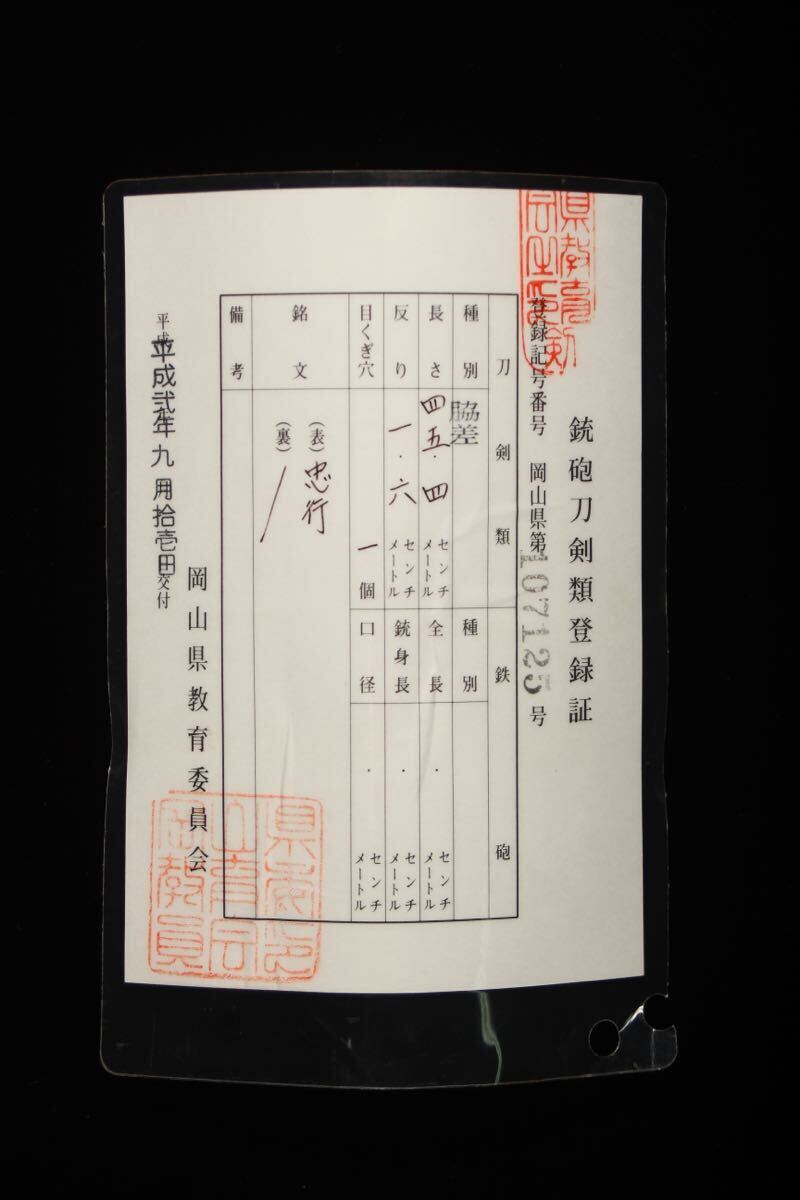 銃砲刀剣類登録証
登録記号番号 岡山県第107125号
刀剣類
種別 脇差
長さ 四五.四 センチメートル
反り 一.六 センチメートル
目くぎ穴 一個
鉄砲
種別
全長 . センチメートル
銃身長 . センチメートル
口径 . センチメートル
銘文
(表) 忠行
(裏) /
備考
平成弐年九月拾壱日交付
岡山県教育委員会